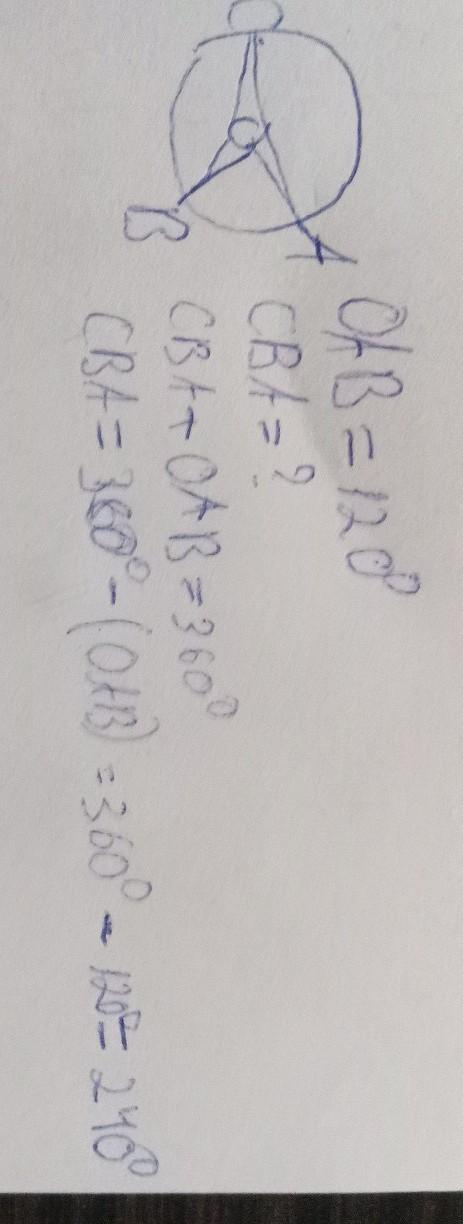 C
O
B
A
OAB = 120°
CBA = ?
CBA + OAB = 360°
CBA = 360° - (OAB) = 360° - 120° = 240°